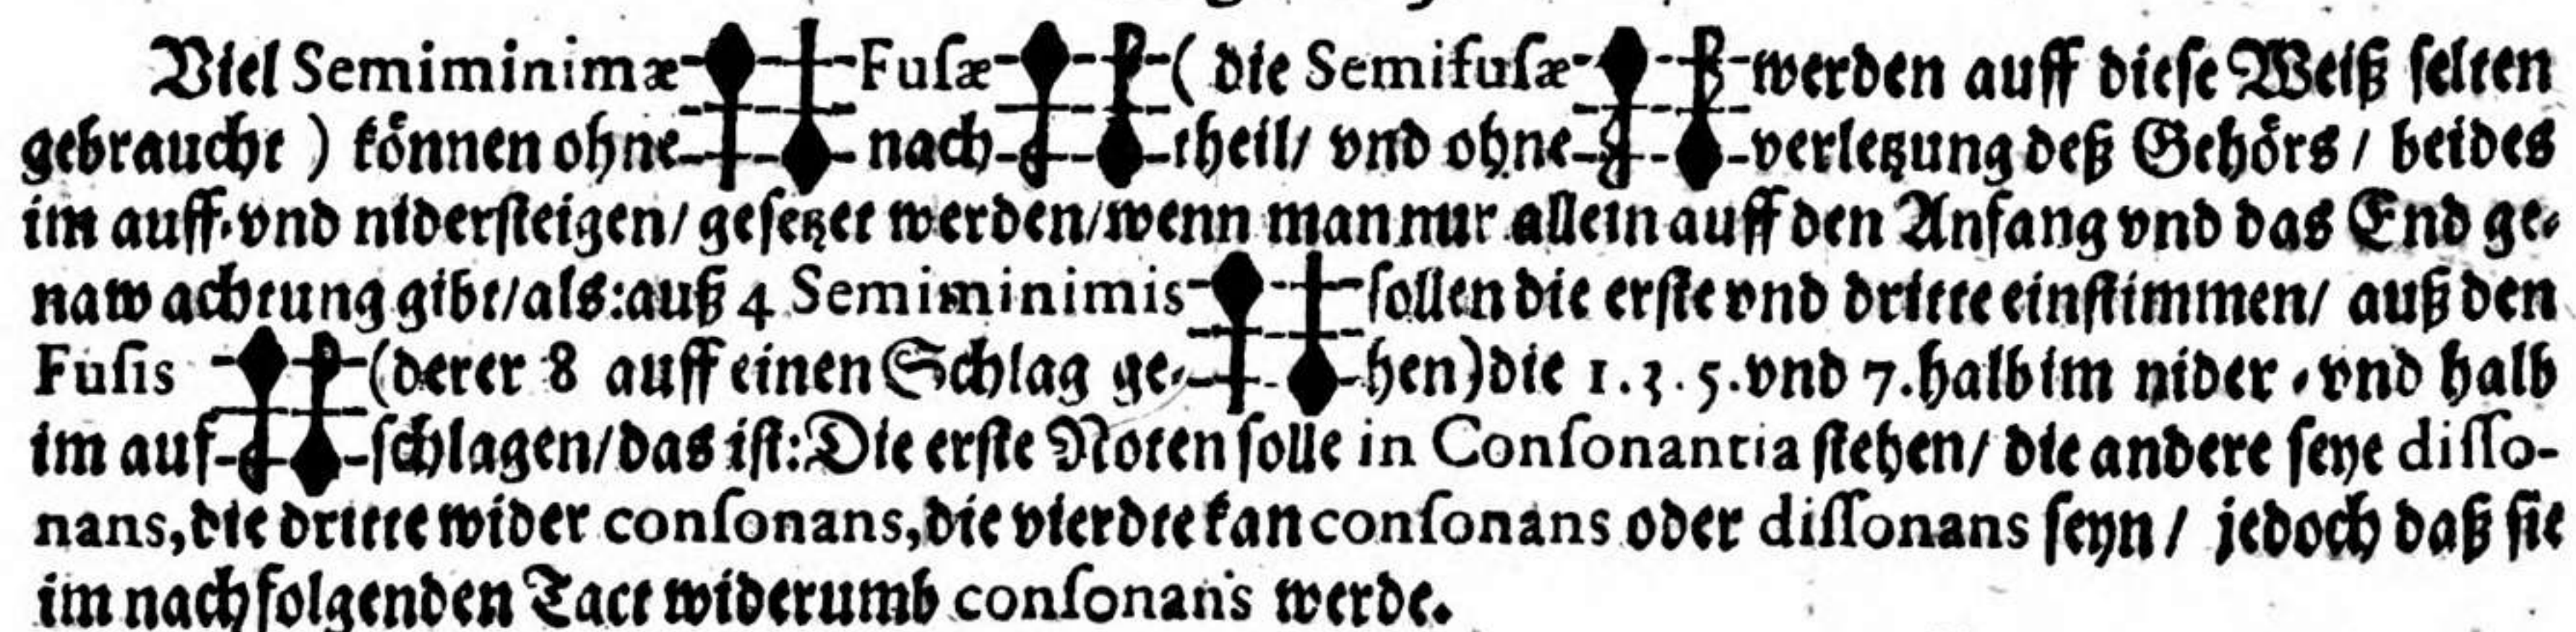 Viel Semiminimæ Fuſæ ( die Semifuſæ werden auff dieſe Weiß ſelten
gebraucht ) können ohne nachtheil/ vnd ohne verletzung deß Gehörs / beides
im auff-vnd niderſteigen/ geſetzet werden/wenn man nur allein auff den Anfang vnd das End ge-
naw achtung gibt/als:auß 4 Semiminimis ſollen die erſte vnd dritte einſtimmen/ auß den
Fuſis (derer 8 auff einen Schlag gehen)die 1.3.5.vnd 7.halb im nider-vnd halb
im aufſchlagen/das iſt:Die erſte Noten ſolle in Conſonantia ſtehen/ die andere ſeye diſſo-
nans,die dritte wider conſonans,die vierdte kan conſonans oder diſſonans ſeyn / jedoch daß ſie
im nachfolgenden Tact widerumb conſonans werde.